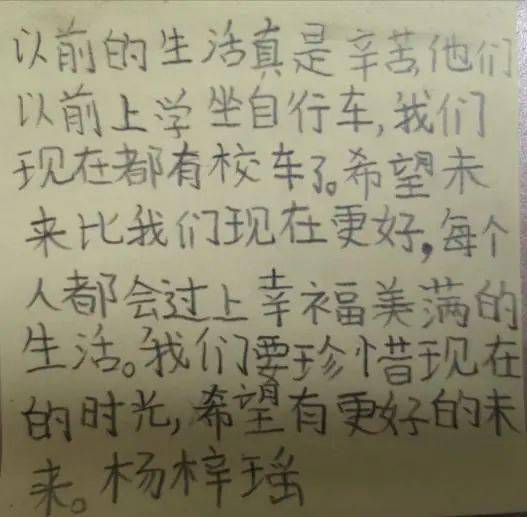 以前的生活真是辛苦,他们
以前上学坐自行车,我们
现在都有校车了。希望未
来比我们现在更好,每个
人都会过上幸福美满的
生活。我们要珍惜现在
的时光,希望有更好的未
来。杨梓瑶